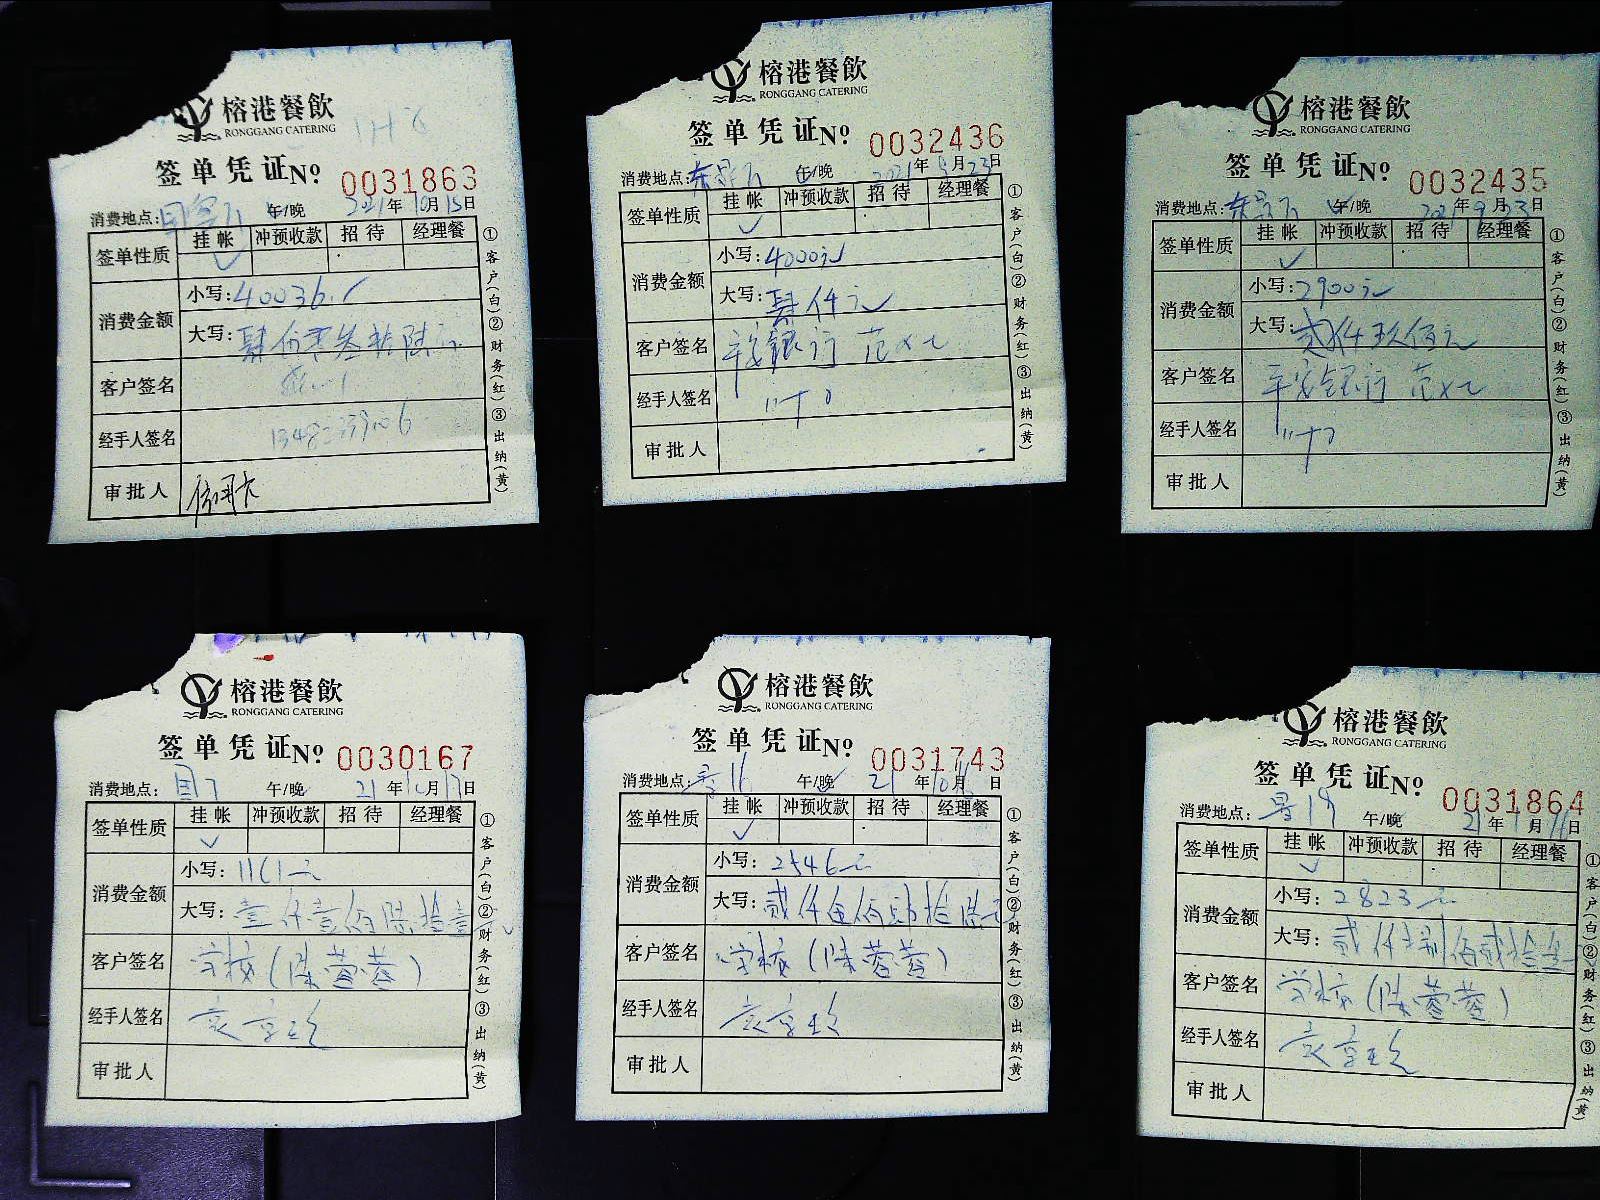 榕港餐飲
RONGGANG CATERING
签单凭证№ 0031863
消费地点: 午/晚 2021年10月15日
签单性质 挂帐 冲预收款 招待 经理餐
✓
消费金额 小写:40036.
大写:
客户签名
经手人签名
审批人 信用卡
①客户(白)②财务(红)③出纳(黄)
榕港餐飲
RONGGANG CATERING
签单凭证№ 0032436
消费地点: 午/晚 2021年9月23日
签单性质 挂帐 冲预收款 招待 经理餐
✓
消费金额 小写:4000元
大写:肆仟元
客户签名 平安銀行 范
经手人签名
审批人
①客户(白)②财务(红)③出纳(黄)
榕港餐飲
RONGGANG CATERING
签单凭证№ 0032435
消费地点: 午/晚 2021年9月23日
签单性质 挂帐 冲预收款 招待 经理餐
✓
消费金额 小写:2900元
大写:贰仟玖佰元
客户签名 平安銀行 范
经手人签名
审批人
①客户(白)②财务(红)③出纳(黄)
榕港餐飲
RONGGANG CATERING
签单凭证№ 0030167
消费地点: 午/晚 21年10月17日
签单性质 挂帐 冲预收款 招待 经理餐
✓
消费金额 小写:1161元
大写:壹仟壹佰陆拾壹
客户签名 学校(陈蓉蓉)
经手人签名
审批人
①客户(白)②财务(红)③出纳(黄)
榕港餐飲
RONGGANG CATERING
签单凭证№ 0031743
消费地点: 午/晚 21年10月16日
签单性质 挂帐 冲预收款 招待 经理餐
✓
消费金额 小写:2546元
大写:贰仟伍佰肆拾陆元
客户签名 学校(陈蓉蓉)
经手人签名
审批人
①客户(白)②财务(红)③出纳(黄)
榕港餐飲
RONGGANG CATERING
签单凭证№ 0031864
消费地点: 午/晚 21年 月16日
签单性质 挂帐 冲预收款 招待 经理餐
✓
消费金额 小写:2823元
大写:贰仟捌佰贰拾叁
客户签名 学校(陈蓉蓉)
经手人签名
审批人
①客户(白)②财务(红)③出纳(黄)